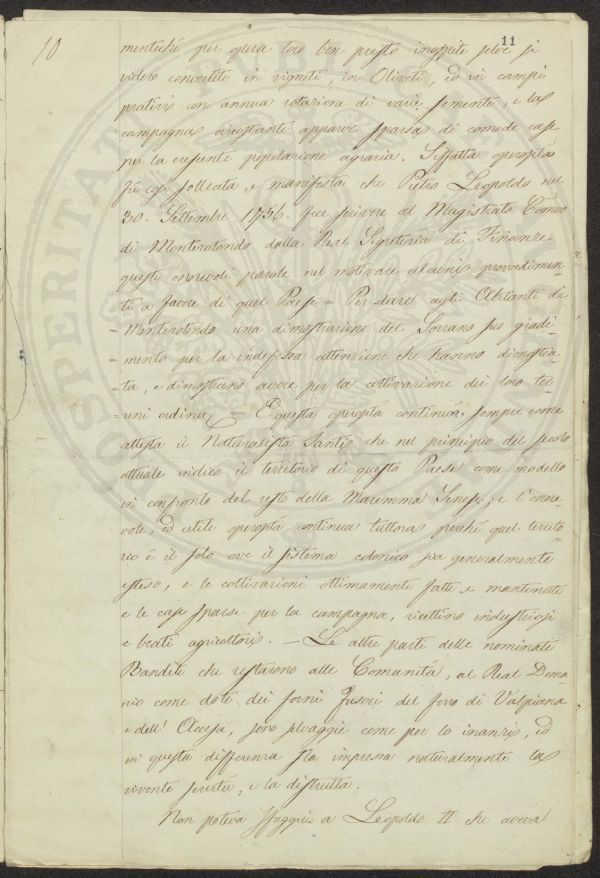 10
11
mentiché per opera loro ben presto inospite selve si
videro convertite in vigneti, in Oliveti, ed in campi
prativi con annua rotazione di varie semente, e la
campagna circostante apparve sparsa di comode case
per la crescente popolazione agraria. Siffatta operosità
fu così sollecita, e manifesta che Pietro Leopoldo nel
30. Settembre 1786. fece scrivere al Magistrato Comuni
di Monterotondo dalla Real Segreteria di Finanze
questi onorevoli parole nel motivare alcuni provvedimen
ti a favore di quel Paese = Per dare agli Abitanti di
= Monterotondo una dimostrazione del Sovrano suo gradi-
= mento per la indefessa attenzione che hanno dimostra-
= ta, e dimostrano avere per la coltivazione dei loro ter-
= reni ordina, = E questa operosità continuò sempre come
attesta il Naturalista Santi che nel principio del secolo
attuale indicò il territorio di questo Paese come modello
in confronto del resto della Maremma Senese, e l'onore-
vole, ed utile operosità continua tuttora perché quel territo-
rio è il solo ove il sistema colonico sia generalmente
esteso, e le coltivazioni ottimamente fatte e mantenute
e le case sparse per la campagna, ricettino industriosi
e beati agricoltori. — Le altre parti delle nominate
Bandite che restarono alle Comunità, al Real Dema
nio come dote dei forni fusori del ferro di Valpiana
e dell' Accesa, sono selvaggie come per lo inanzi, ed
in questa differenza sta impressa naturalmente la
vivente servitù, e la distrutta.
Non poteva sfuggire a Leopoldo II che aveva